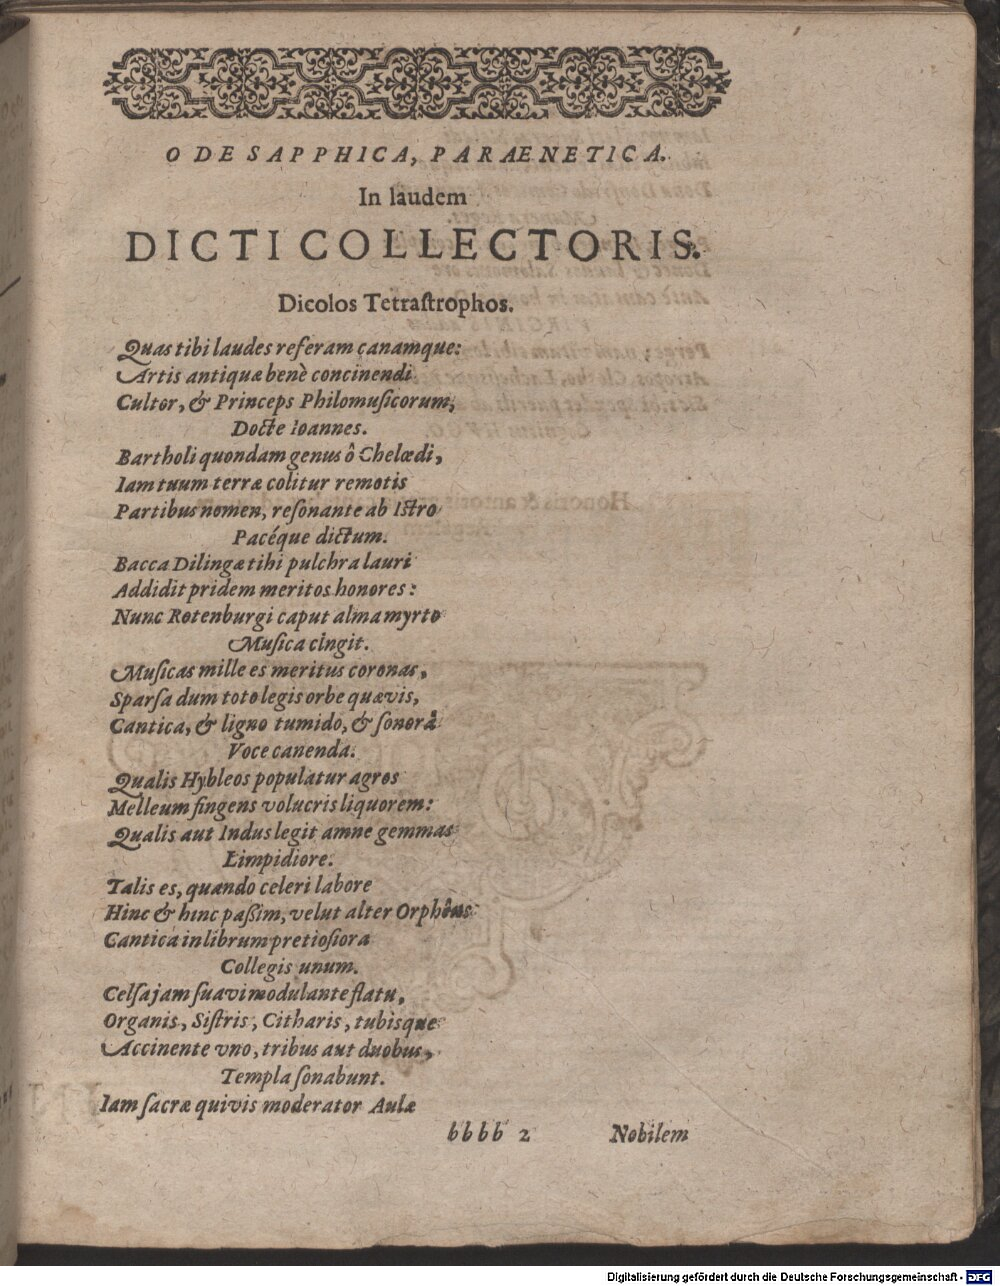 ODE SAPPHICA, PARAENETICA.
In laudem
DICTI COLLECTORIS.
Dicolos Tetraſtrophos.
Quas tibi laudes referam canamque:
Artis antiquæ benè concinendi
Cultor, & Princeps Philomuſicorum,
Docte Ioannes.
Bartholi quondam genus ô Chelœdi,
Iam tuum terræ colitur remotis
Partibus nomen, reſonante ab Iſtro
Pacéque dictum.
Bacca Dilingæ tihi pulchra lauri
Addidit pridem meritos honores:
Nunc Rotenburgi caput alma myrto
Muſica cingit.
Muſicas mille es meritus coronas,
Sparſa dum toto legis orbe quævis,
Cantica, & ligno tumido, & ſonorâ
Voce canenda.
Qualis Hybleos populatur agros
Melleum fingens volucris liquorem:
Qualis aut Indus legit amne gemmas
Limpidiore.
Talis es, quando celeri labore
Hinc & hinc paßim, velut alter Orphêus
Cantica in librum pretioſiora
Collegis unum.
Celſa jam ſuavi modulante flatu,
Organis, Siſtris, Citharis, tubisque
Accinente vno, tribus aut duobus,
Templa ſonabunt.
Iam ſacræ quivis moderator Aulæ
bbbb 2 Nobilem
Digitalisierung gefördert durch die Deutsche Forschungsgemeinschaft - DFG